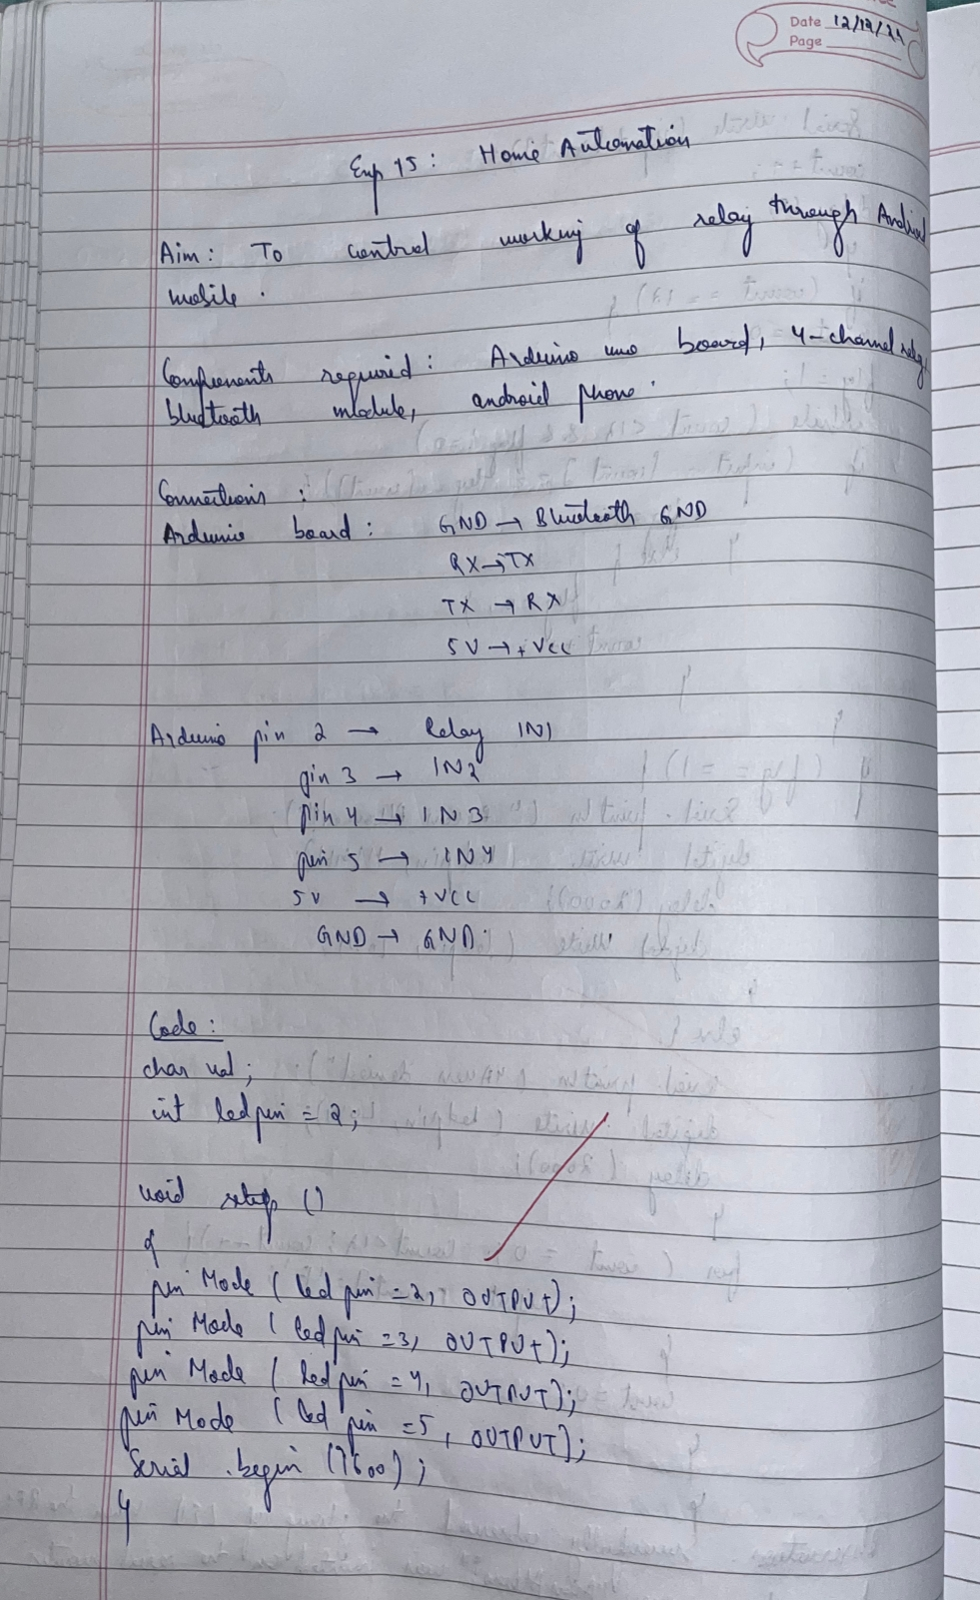 Date 12/12/24
Page
Exp 15: Home Automation
Aim: To control working of relay through Android
mobile.
Components required: Arduino uno board, 4-channel relay,
bluetooth module, android phone.
Connections:
Arduino board: GND → Bluetooth GND
RX → TX
TX → RX
5V → +Vcc
Arduino pin 2 → Relay IN1
pin 3 → IN2
pin 4 → IN3
pin 5 → IN4
5V → +VCC
GND → GND.
Code:
char val;
int ledpin = 2;
void setup ()
{
pin Mode (led pin = 2, OUTPUT);
pin Mode (led pin = 3, OUTPUT);
pin Mode (led pin = 4, OUTPUT);
pin Mode (led pin = 5, OUTPUT);
Serial .begin (9600);
}